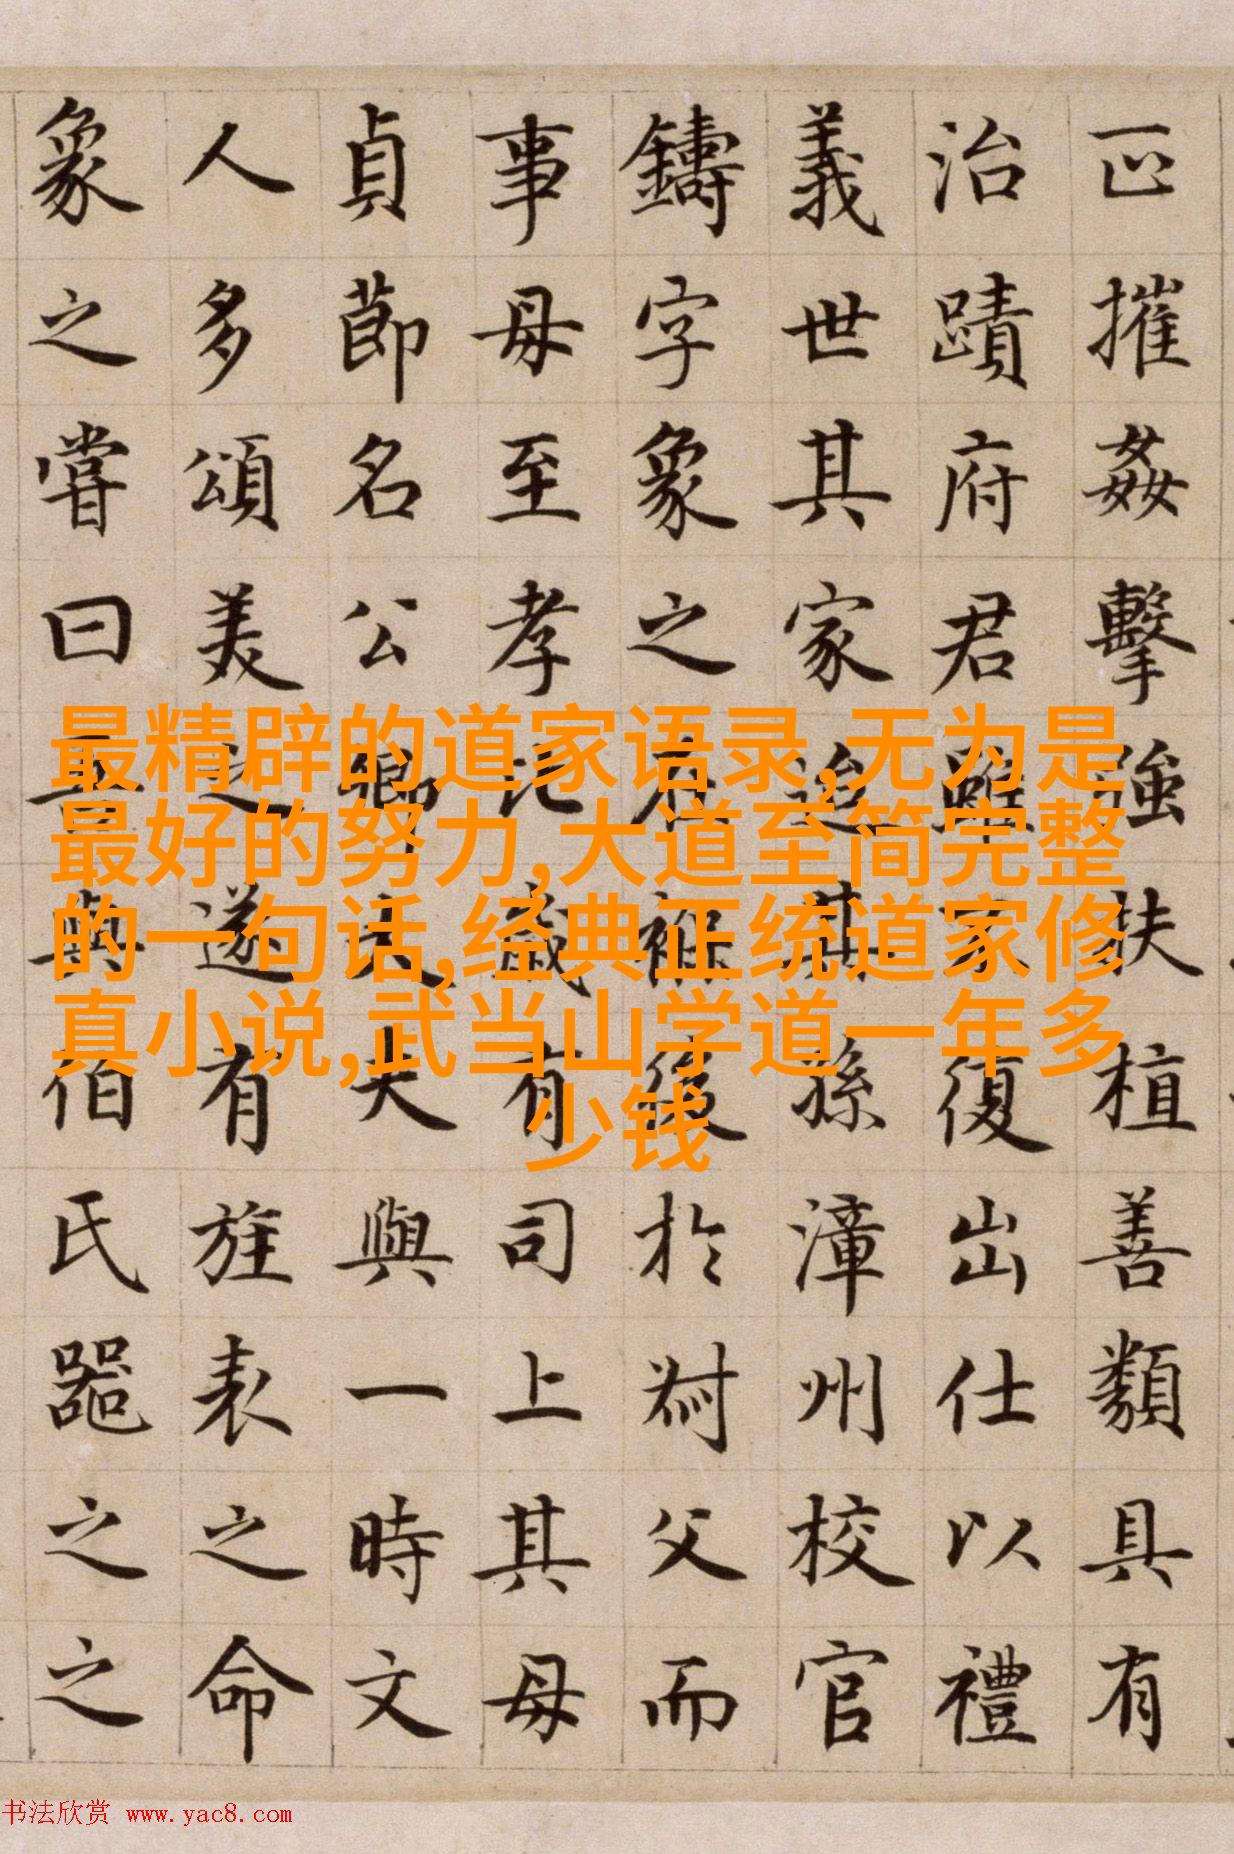 正摧姦擊強扶植善類具有
治蹟府君雖不復出仕以禮
義世其家迨其孫漳州校官
鑄字象之在褓後於父而
事母至孝比歲有司上其母
貞節名公卿大夫與一時文
人多頌美之遂有旌表之命
象之嘗曰與伯氏器之之
最精辟的道家语录,无为是
最好的努力,大道至简完整
的一句话,经典正统道家修
真小说,武当山学道一年多
少钱
书法欣赏 www.yac8.com